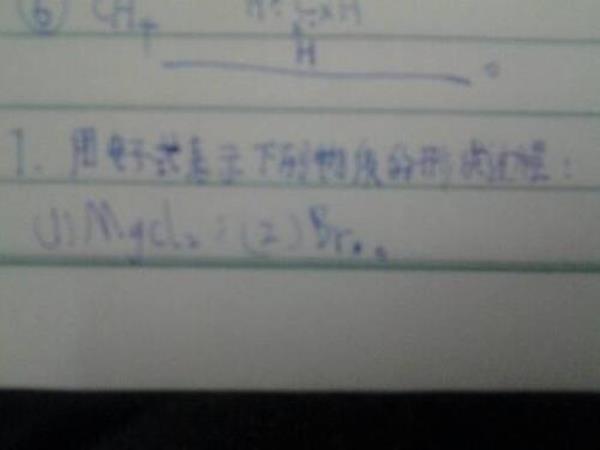 ⑥ CH₄ H
H
7. 用电子式表示下列物质的形成过程:
(1)MgCl₂; (2)Br₂。